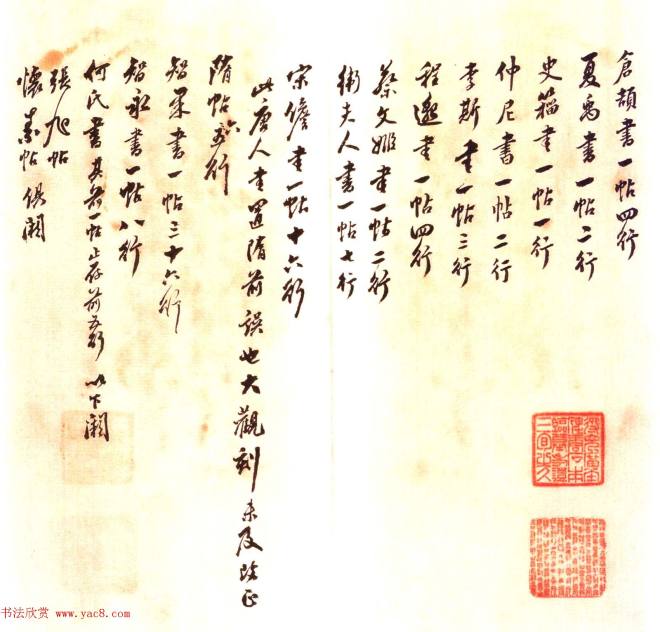 倉頡書一帖四行
夏禹書一帖二行
史籀書一帖一行
仲尼書一帖二行
李斯書一帖三行
程邈書一帖四行
蔡文姬書一帖二行
衛夫人書一帖七行
宋儋書一帖十六行
此唐人書置隋前誤也大觀刻未及改正
隋帖六行
智果書一帖三十六行
智永書一帖八行
何氏書其前一帖止存前五行 以下闕
張旭帖
懷素帖 俱闕
书法欣赏 www.yac8.com